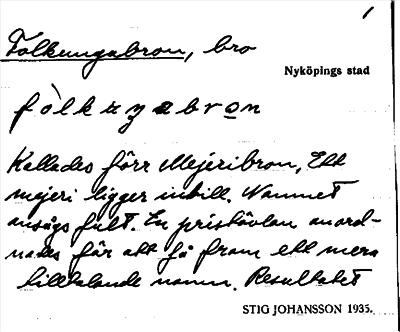 1
Folkungabron, bro
Nyköpings stad
Kallades förr Mejeribron, Ett
mejeri ligger intill. Namnet
ansågs fult. En pristävlan anord-
nades för att få fram ett mera
tilltalande namn. Resultatet
STIG JOHANSSON 1935.